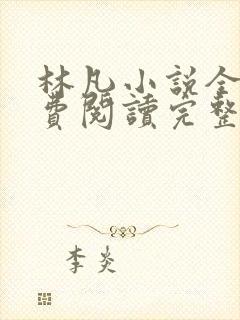 林凡小説全
費閱讀完整
李炎